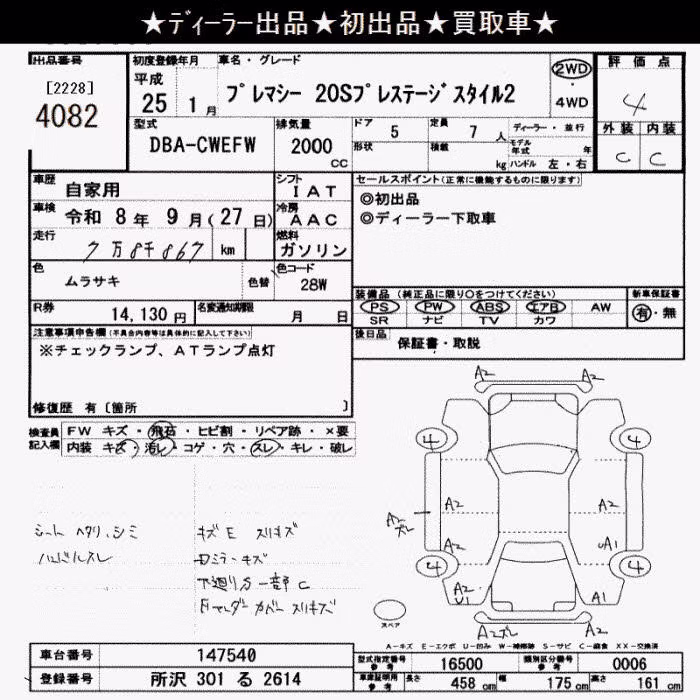 ★ﾃﾞｨｰﾗｰ出品★初出品★買取車★
出品番号
[2228]
4082
初度登録年月
平成
25 1月
車名・グレード
ﾌﾟﾚﾏｼｰ 20Sﾌﾟﾚｽﾃｰｼﾞｽﾀｲﾙ2
2WD
・
4WD
評価点
4
外装 内装
C C
型式
DBA-CWEFW
排気量
2000
CC
ドア 5
定員 7人
形状
積載 kg
ディーラー・並行
モデル年式 年
ハンドル 左・右
車歴
自家用
シフト
IAT
車検
令和 8年 9月(27日)
冷房
AAC
走行
7万8千867 km
燃料
ガソリン
色
ムラサキ
色替
色コード
28W
R券
14,130円
名変通知期限
月 日
セールスポイント(正常に機能するものに限ります)
◎初出品
◎ディーラー下取車
装備品 (純正品に限り○をつけてください)
PS PW ABS エアB AW
SR ナビ TV カワ
新車保証書
有・無
後日品
保証書・取説
注意事項申告欄(不具合内容等は具体的に記入して下さい)
※チェックランプ、ATランプ点灯
修復歴 有〔箇所 〕
検査員記入欄
FW キズ・飛石・ヒビ割・リペア跡・×要
内装 キズ・汚レ・コゲ・穴・スレ・キレ・破レ
シート ヘタリ、シミ
ハンドルスレ
キズE スリキズ
ミラーキズ
下廻り 一部C
カバー スリキズ
A2 A2
4 4
A2 A2
A2
スレ
A2 A1
4 4
A2
U1
A1
A2スレ
スペア
A-キズ E-エクボ U-凹み W-補修跡 S-サビ C-腐食 XX-交換済
車台番号 147540
登録番号 所沢 301 る 2614
型式指定番号
参考
16500
類別区分番号
参考
0006
車庫証明用
参考
長さ 458 cm
幅 175 cm
高さ 161 cm